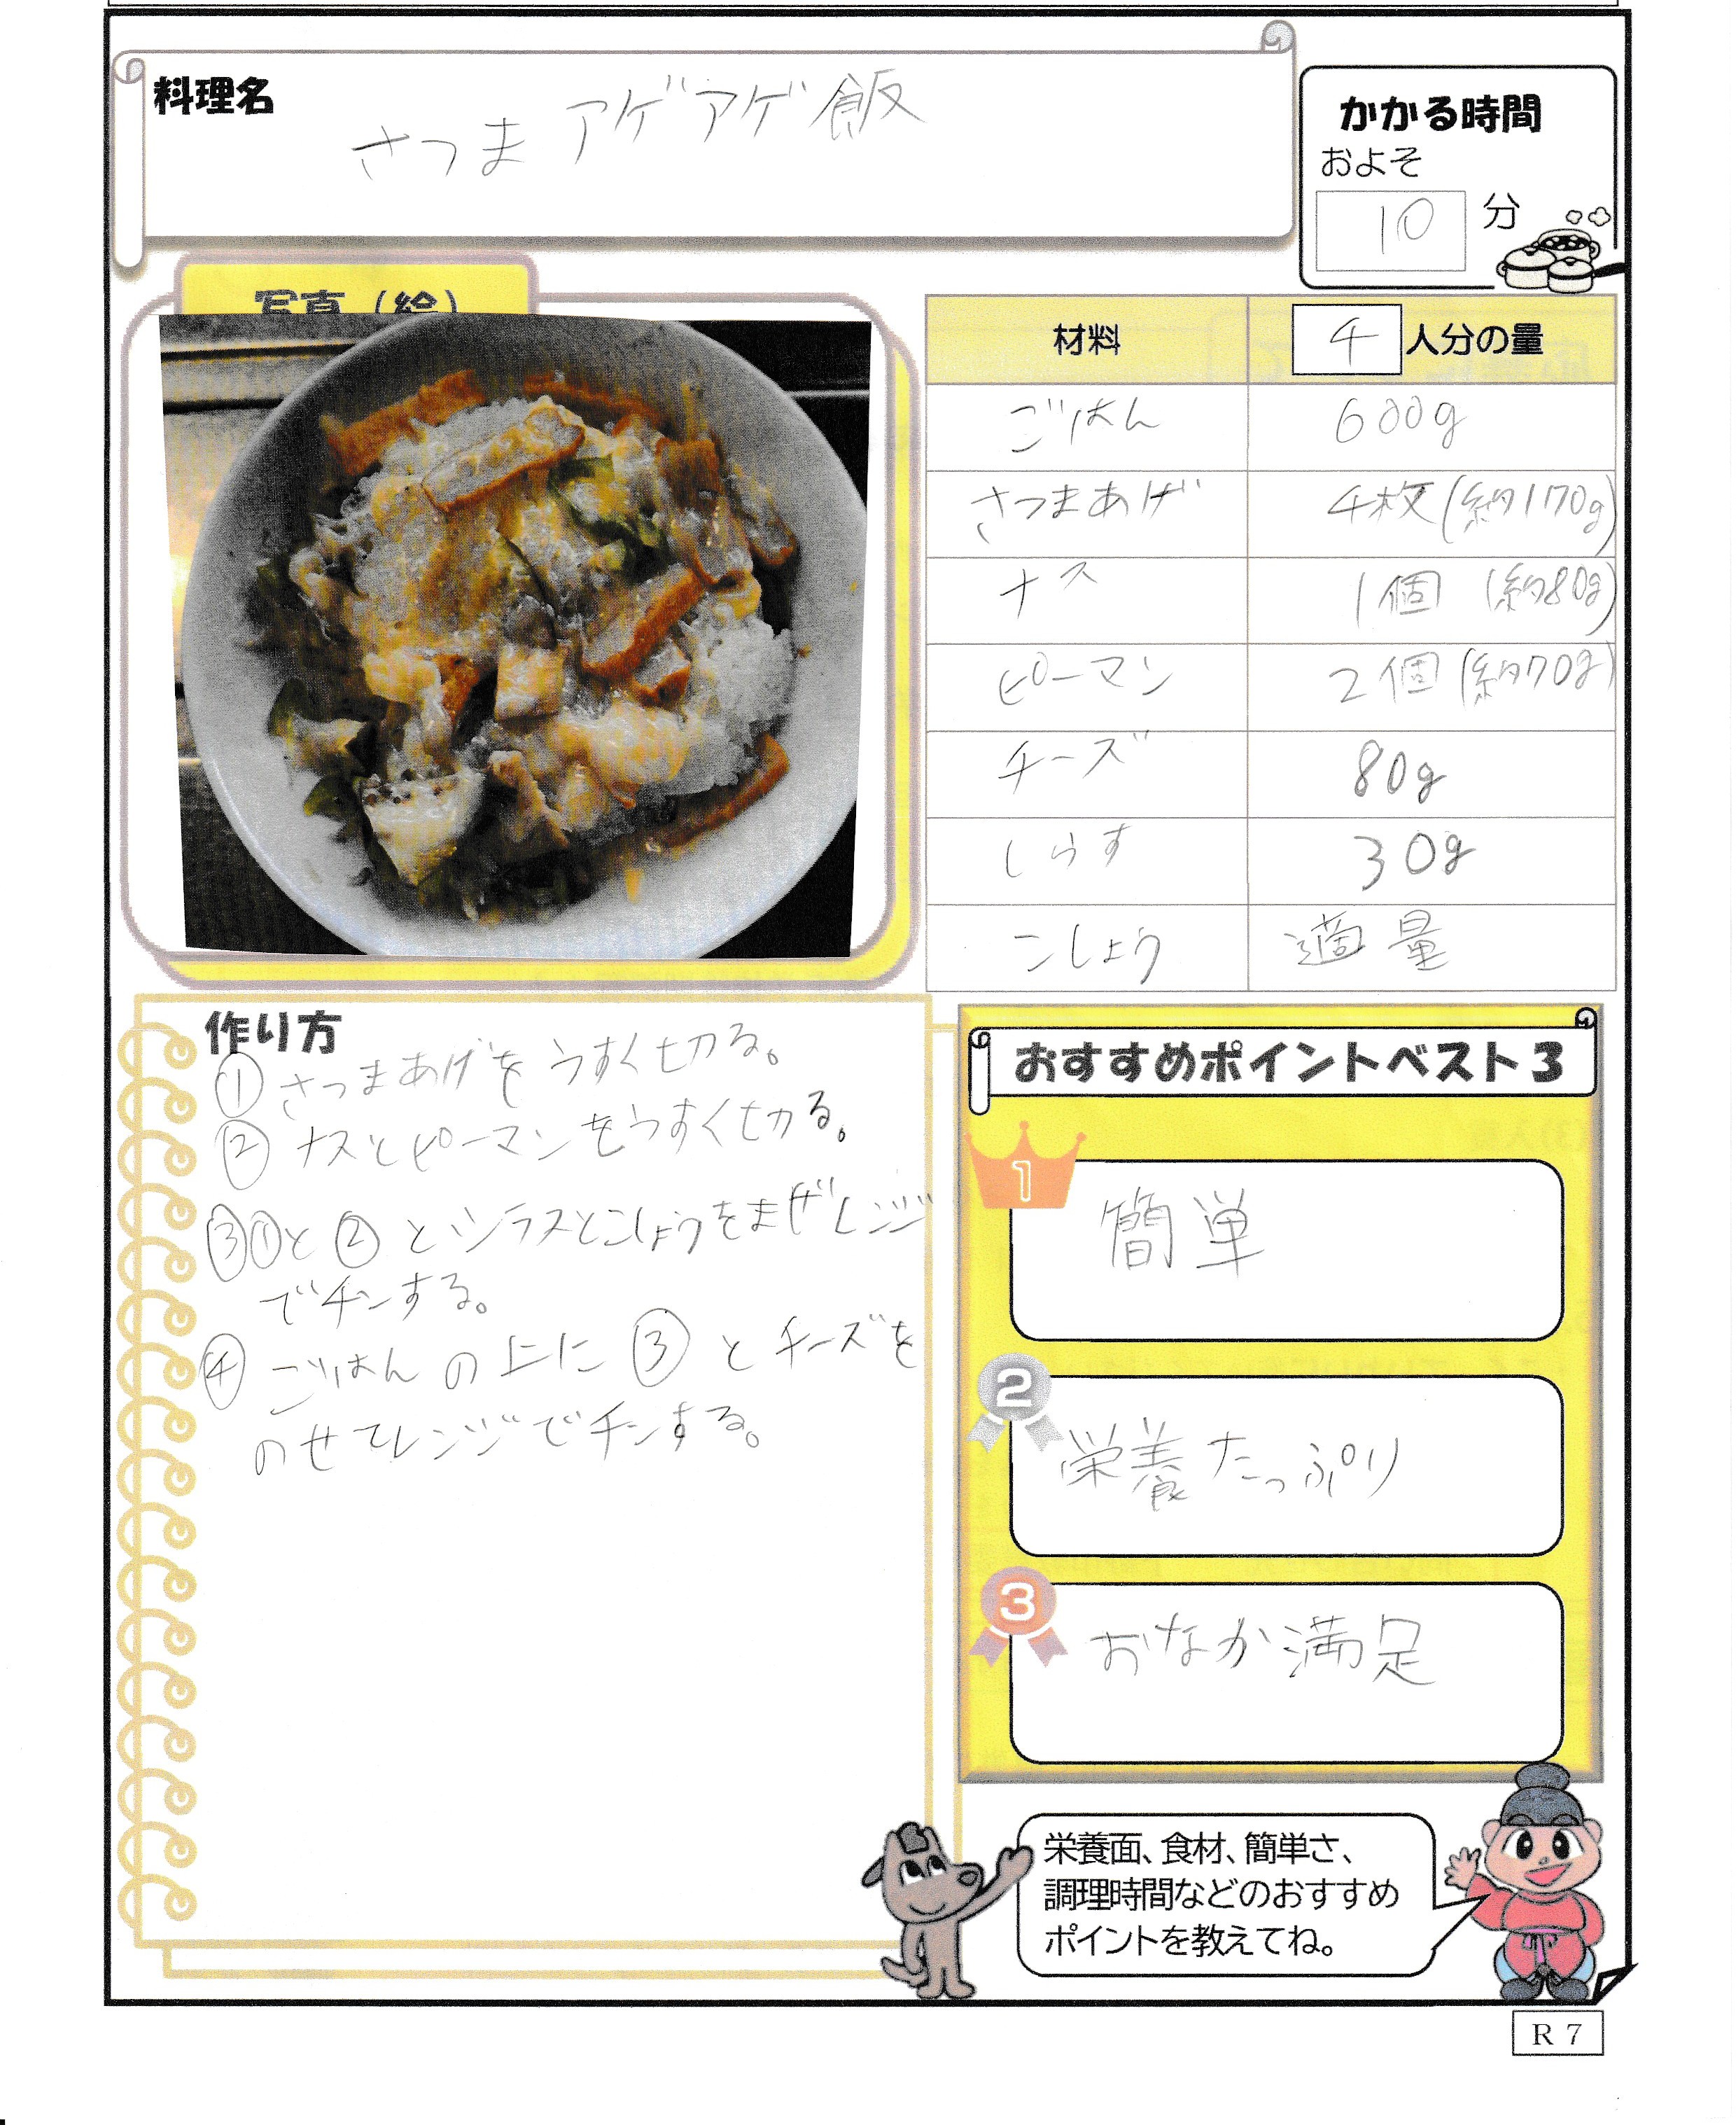 料理名
さつまアゲアゲ飯
かかる時間
およそ
10 分
写真(絵)
材料 4 人分の量
ごはん 600g
さつまあげ 4枚(約170g)
ナス 1個 (約80g)
ピーマン 2個(約70g)
チーズ 80g
しらす 30g
こしょう 適量
作り方
①さつまあげをうすく切る。
②ナスとピーマンをうすく切る。
③①と②とシラスとこしょうをまぜレンジ
でチンする。
④ごはんの上に③とチーズを
のせてレンジでチンする。
おすすめポイントベスト3
1
簡単
2
栄養たっぷり
3
おなか満足
栄養面、食材、簡単さ、
調理時間などのおすすめ
ポイントを教えてね。
R7